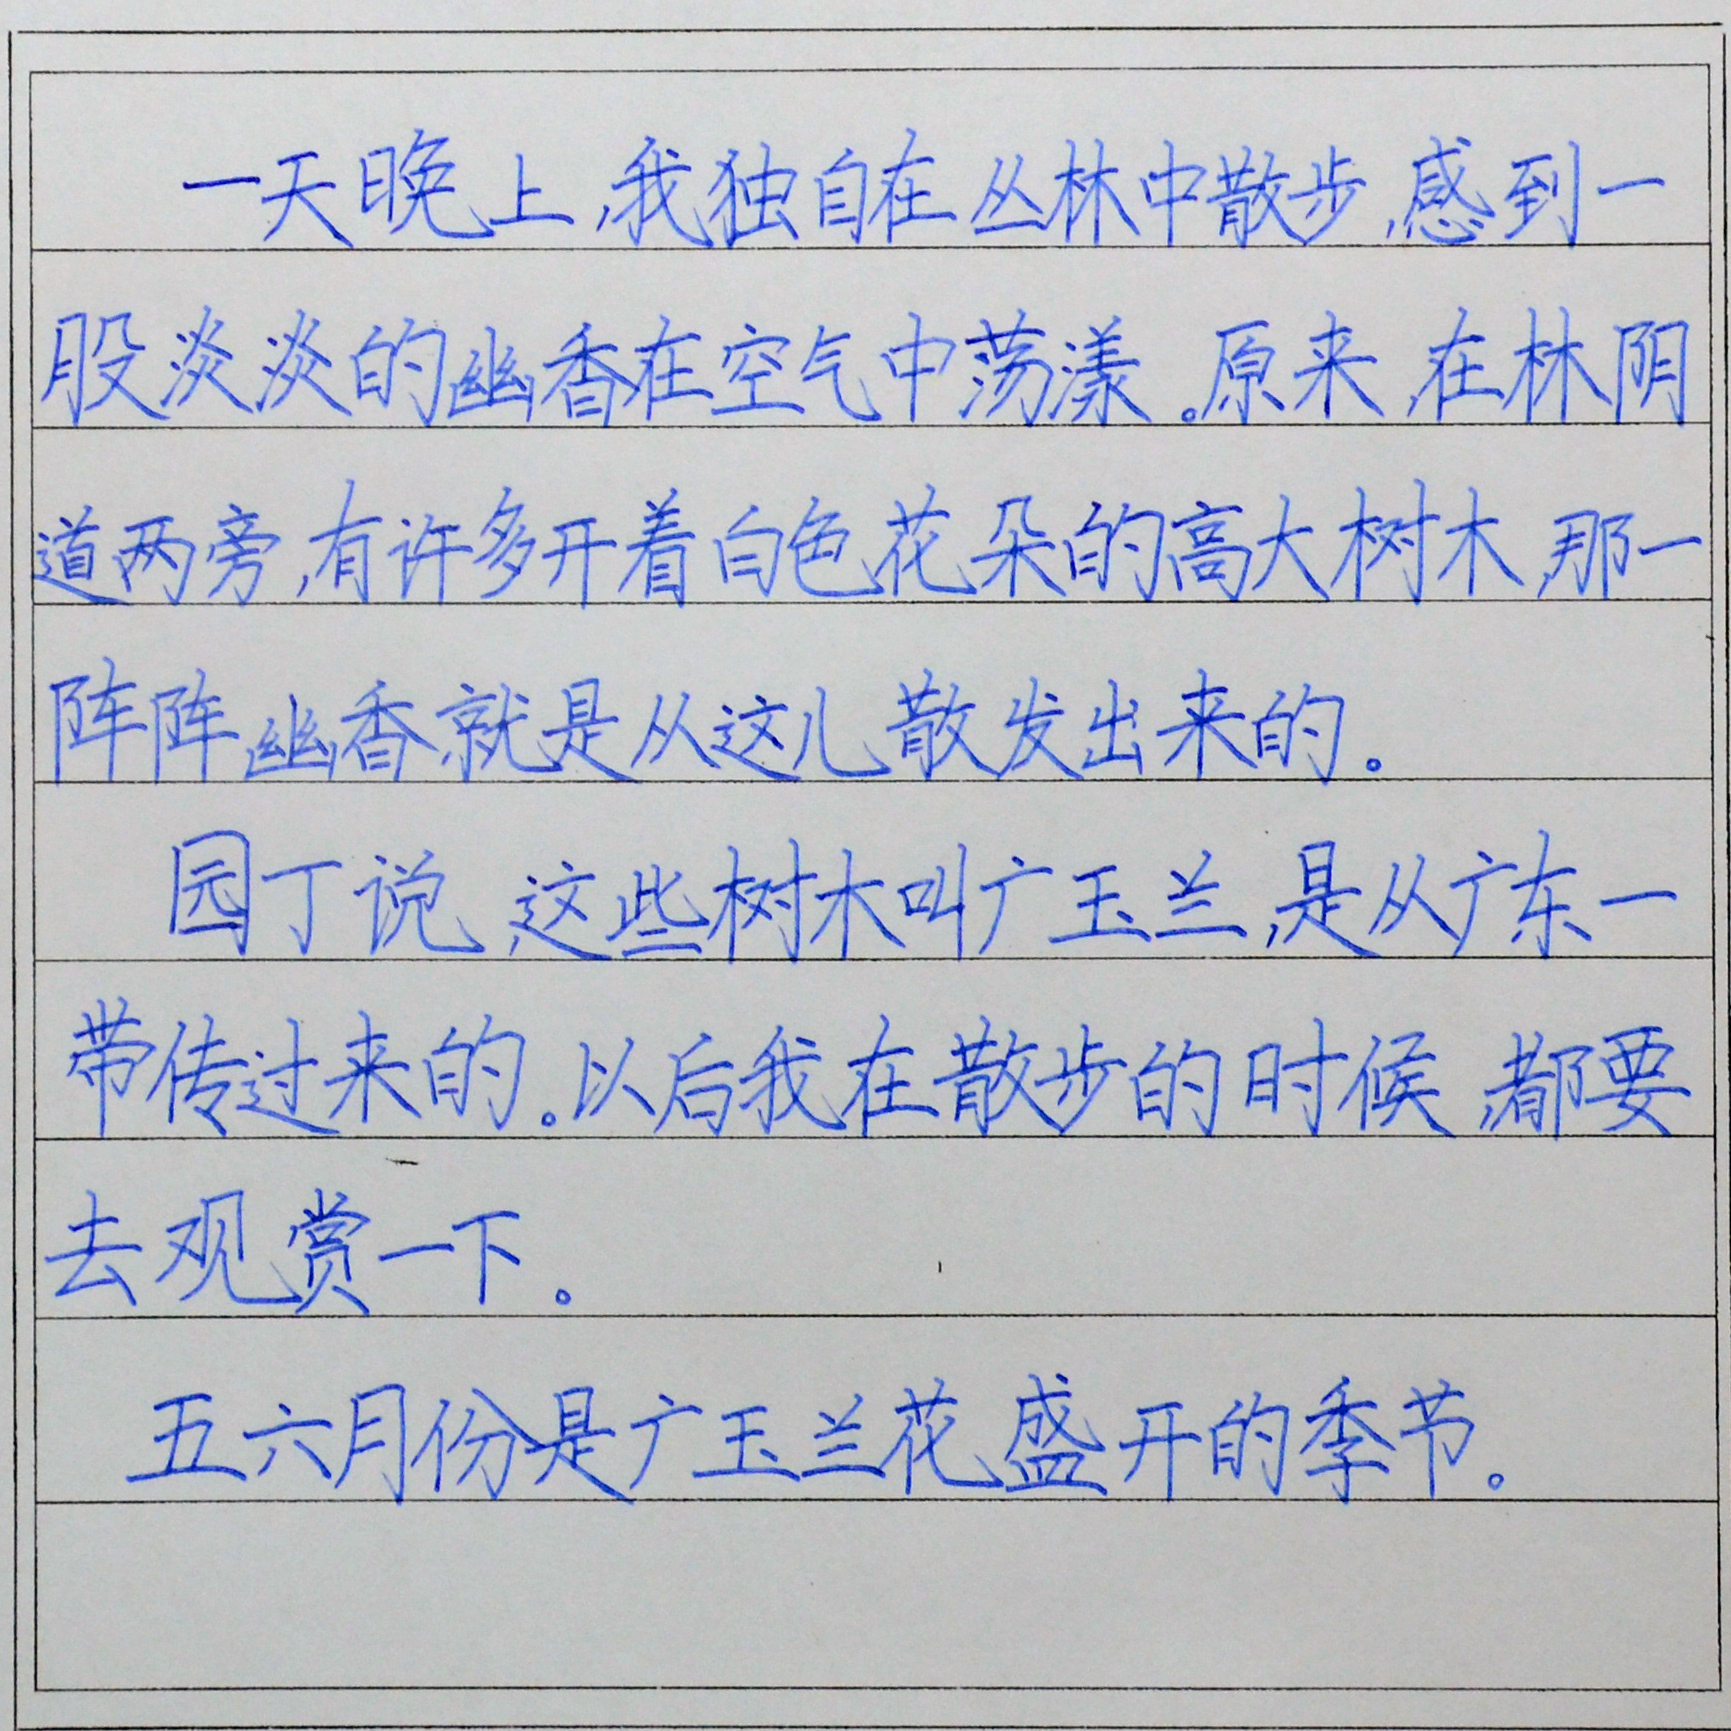 一天晚上,我独自在丛林中散步,感到一
股淡淡的幽香在空气中荡漾。原来,在林阴
道两旁,有许多开着白色花朵的高大树木,那一
阵阵幽香就是从这儿散发出来的。
园丁说,这些树木叫广玉兰,是从广东一
带传过来的。以后我在散步的时候,都要
去观赏一下。
五六月份是广玉兰花盛开的季节。